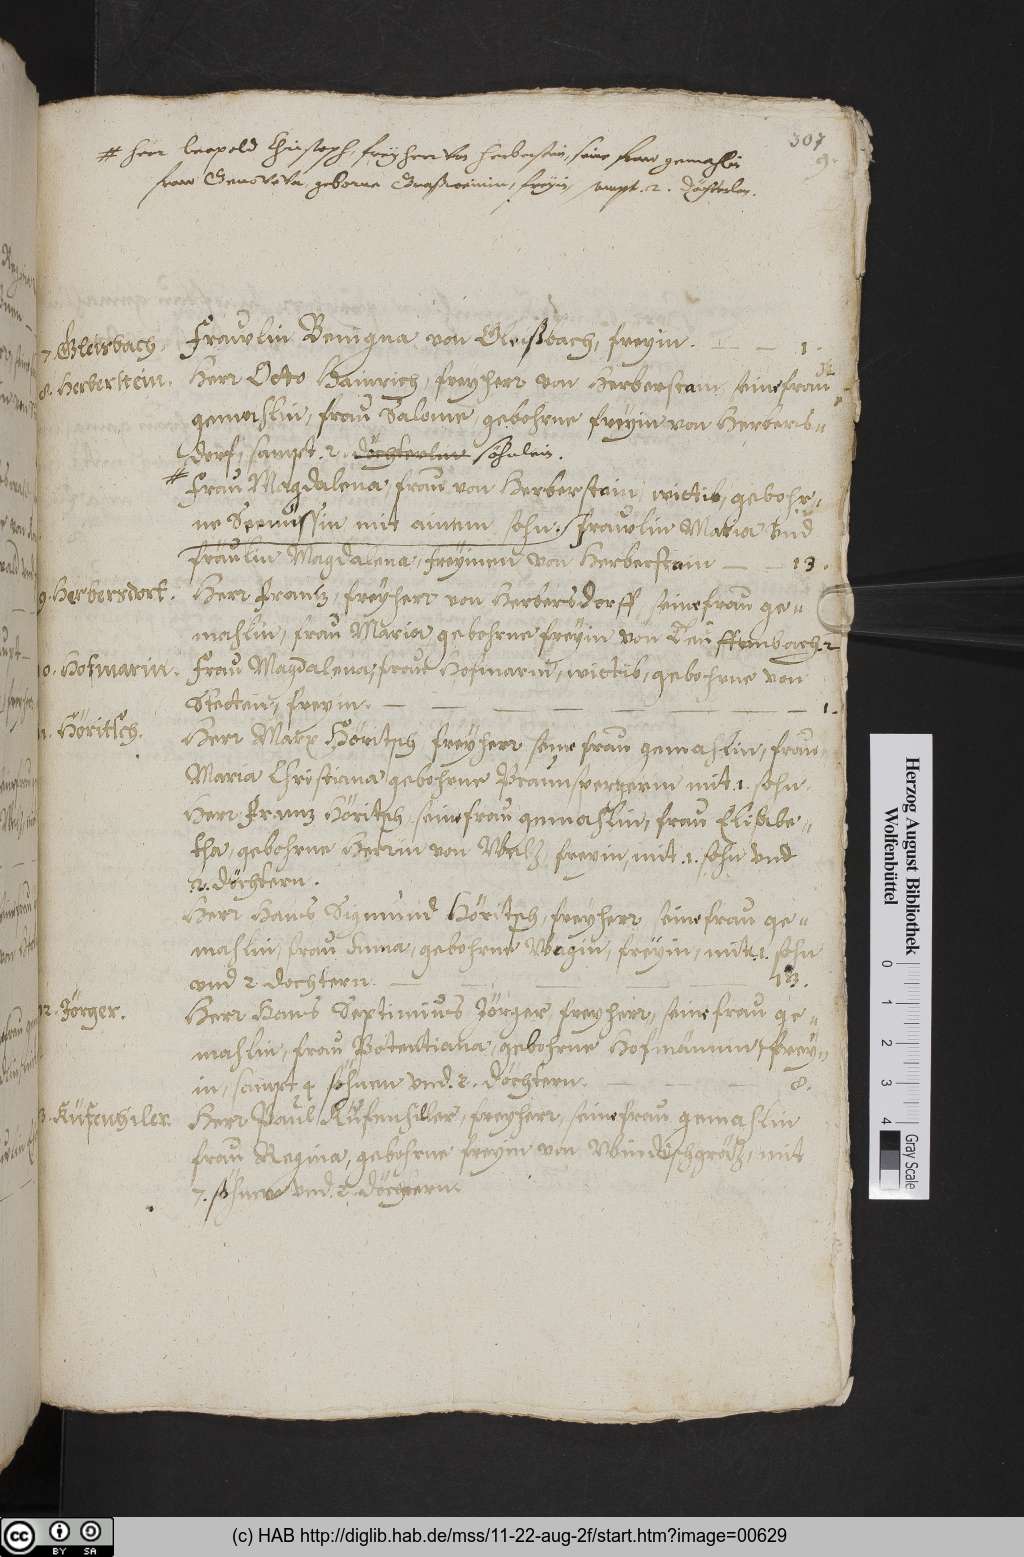 307
9.
# Herr Leopold Christoph, freyherr von Herberstein, seine frau gemahlin
frau Genoveva, geborne freyin, sampt. 2. döchterlen.
7. Gleisbach. Frawlin Benigna von Gleißbach, freyin. — — 1.
8. Herberstein. Herr Otto Hainrich, freyherr von Herberstain, seine frau
gemahlin, frau Salome, gebohrne freyin von Herbers-
dorf, sampt. 2. döchterlin söhnlein.
# Frau Magdalena, frau von Herberstain, wittib, gebohr-
ne mit ainem sohn. Frawlin Maria Und
fräulin Magdalena, freyinen von Herberstain — — 13.
9. Herbersdorf. Herr Frantz, freyherr von Herbersdorff, seine frau ge-
mahlin, frau Maria, gebohrne freyin von Teuffenbach. 2
10. Hofmarin. Frau Magdalena, frau Hofmarin, wittib, gebohrne von
Stetten, freyin. — — — — — — 1.
11. Höritsch. Herr Marx Höritsch freyherr seine frau gemahlin, frau
Maria Christiana gebohrne mit. 1. sohn.
Herr Frantz Höritsch, seine frau gemahlin, frau Elisabe-
tha, gebohrne Herrin von freyin, mit. 1. sohn und
2. döchtern.
Herr Hans Sigmund Höritsch, freyherr, seine frau ge-
mahlin, frau Anna, gebohrne Wagin, freyin, mit. 1. sohn
und 2 dochtern — — — — — 13.
12. Jörger. Herr Hans Septimius Jörger, freyherr, seine frau ge-
mahlin, frau Potentiana, gebohrne Hofmännin, frey-
in, sampt 4 söhnen und. 2. döchtern. — — — 8.
13. Küfenhiler. Herr Paul Küfenhiller, freyherr, seine frau gemahlin
frau Regina, gebohrne freyin von Windischgrätz, mit
7. söhnen und. 2. döchtern.
Herzog August Bibliothek
Wolfenbüttel
0 1 2 3 4
Gray Scale
cc BY SA
(c) HAB http://diglib.hab.de/mss/11-22-aug-2f/start.htm?image=00629